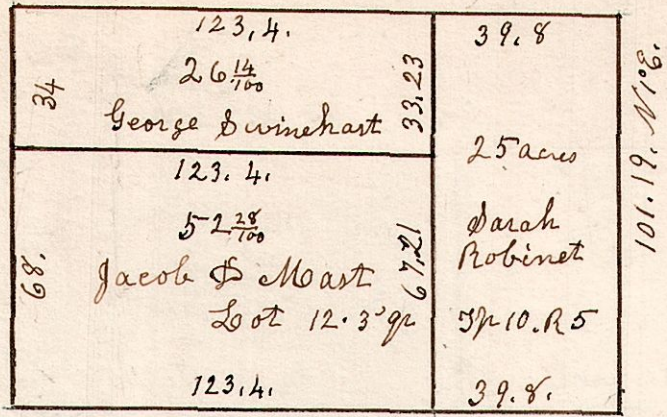 123,4.
34
26 14/100
33.23
George Swinehart
123. 4.
68.
52 28/100
67.21
Jacob D Mast
Lot 12. 3d qr
123.4.
39.8
25 acres
Sarah
Robinet
Tp 10. R 5
39.8.
101.19. N 1° E.